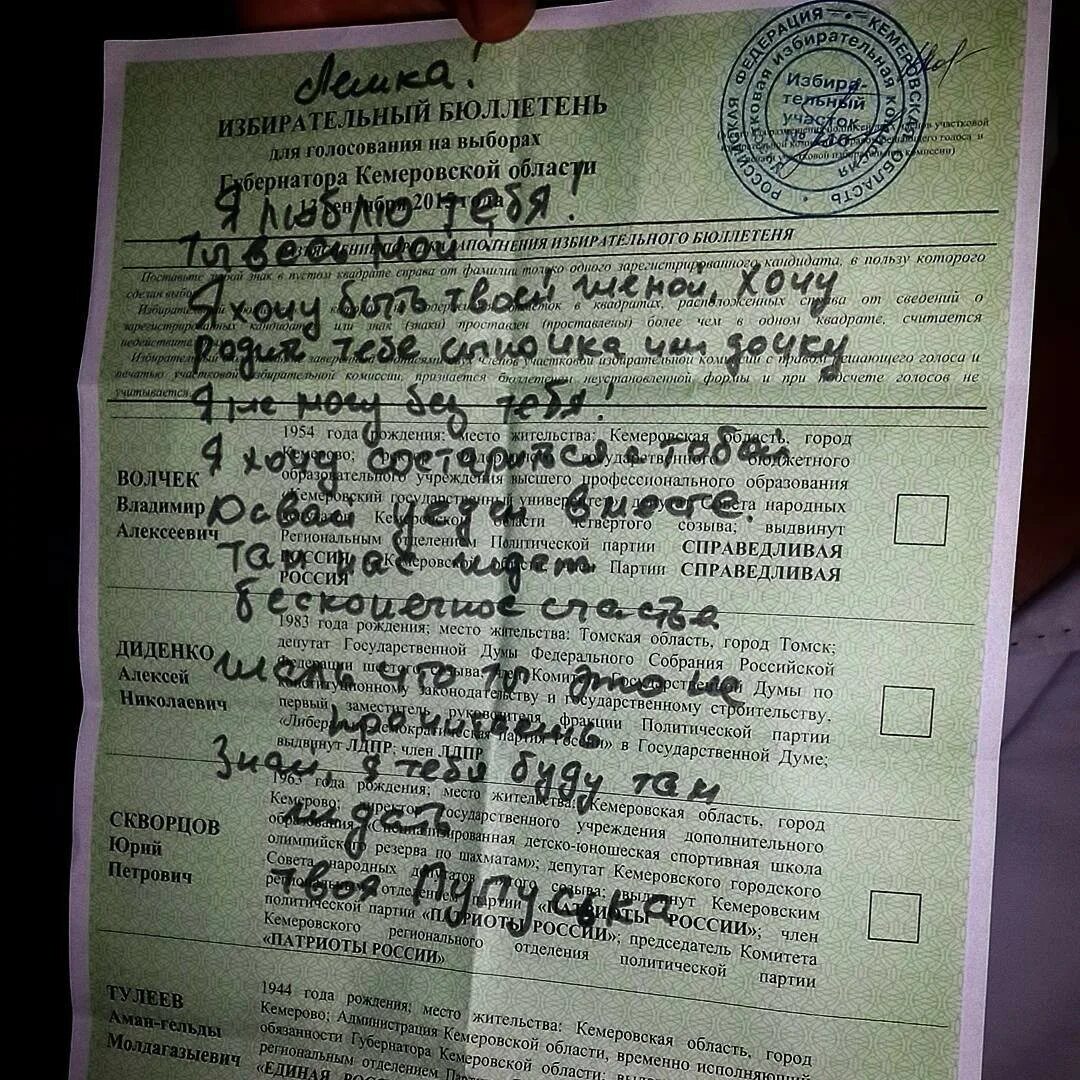 Лешка!
ИЗБИРАТЕЛЬНЫЙ БЮЛЛЕТЕНЬ
для голосования на выборах
Губернатора Кемеровской области
Я люблю тебя!
Ты весь мой
ЗАПОЛНЕНИЯ ИЗБИРАТЕЛЬНОГО БЮЛЛЕТЕНЯ
Поставьте любой знак в пустом квадрате справа от фамилии только одного зарегистрированного кандидата, в пользу которого
сделан выбор
Я хочу быть твоей женой, хочу
в квадратах, расположенных справа от сведений о
зарегистрированных кандидатах или знак (знаки) проставлен (проставлены) более чем в одном квадрате, считается
родить тебе сыночка или дочку
Избирательный членов участковой избирательной комиссии с правом решающего голоса и
печатью участковой избирательной комиссии, признается бюллетенем неустановленной формы и при подсчете голосов не
учитывается
Я не могу без тебя!
Я хочу состариться с тобой
Давай уедем вместе.
Там нас ждет
бесконечное счастье
жаль что ты это не
прочитаешь
Знай, я тебя буду там
ждать
твоя Пупуська
ВОЛЧЕК
Владимир
Алексеевич
1954 года рождения; место жительства: Кемеровская область, город
Кемерово; государственного бюджетного
образовательного учреждения высшего профессионального образования
«Кемеровский государственный университет Совета народных
Кемеровской области четвертого созыва; выдвинут
Региональным отделением Политической партии СПРАВЕДЛИВАЯ
РОССИЯ Кемеровской Партии СПРАВЕДЛИВАЯ
РОССИЯ
ДИДЕНКО
Алексей
Николаевич
1983 года рождения; место жительства: Томская область, город Томск;
депутат Государственной Думы Федерального Собрания Российской
Федерации шестого созыва, Комитета Государственной Думы по
конституционному законодательству и государственному строительству,
первый заместитель руководителя фракции Политической партии
«Либерально-демократическая партия России» в Государственной Думе;
выдвинут ЛДПР; член ЛДПР
СКВОРЦОВ
Юрий
Петрович
1963 года рождения; место жительства: Кемеровская область, город
Кемерово; директор государственного учреждения дополнительного
образования «Специализированная детско-юношеская спортивная школа
олимпийского резерва по шахматам»; депутат Кемеровского городского
Совета народных депутатов созыва; выдвинут Кемеровским
региональным отделением партии «ПАТРИОТЫ РОССИИ»; член
политической партии «ПАТРИОТЫ РОССИИ»; председатель Комитета
Кемеровского регионального отделения политической партии
«ПАТРИОТЫ РОССИИ»
ТУЛЕЕВ
Аман-гельды
Молдагазыевич
1944 года рождения; место жительства: Кемеровская область, город
Кемерово; Администрация Кемеровской области, временно исполняющий
обязанности Губернатора Кемеровской области;
региональным отделением
«ЕДИНАЯ
РОССИЙСКАЯ ФЕДЕРАЦИЯ КЕМЕРОВСКАЯ ОБЛАСТЬ
участковая избирательная комиссия
Избира-
тельный
участок
№